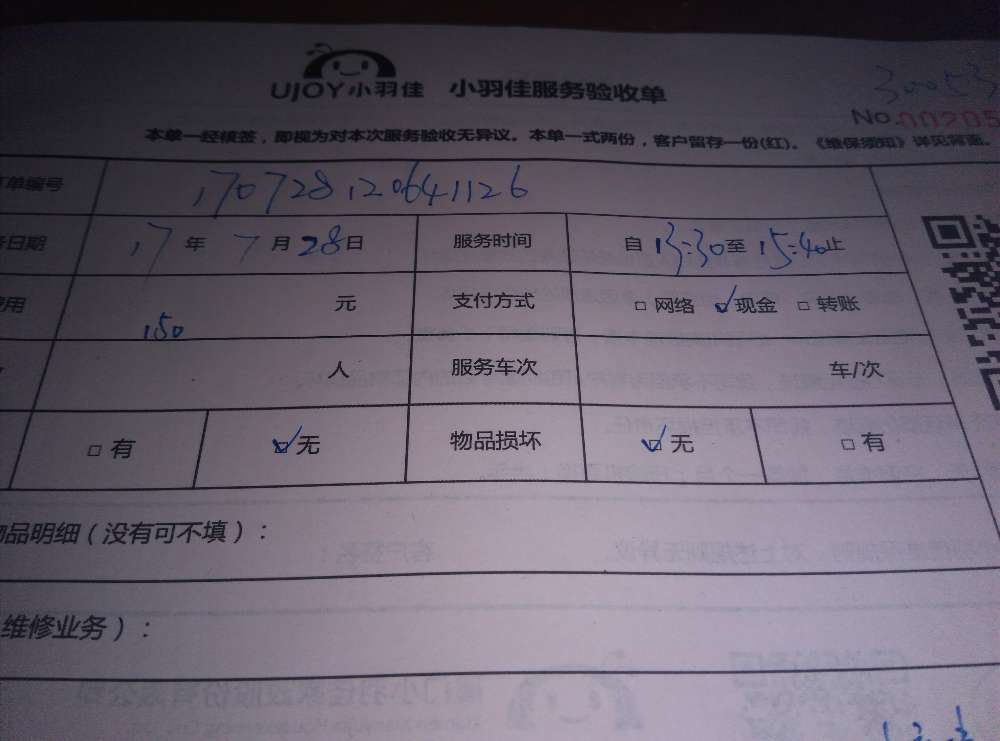 UJOY小羽佳 小羽佳服务验收单
30053
No.00205
本单一经核签，即视为对本次服务验收无异议。本单一式两份，客户留存一份(红)。《维保须知》详见背面。
单编号 170728120641126
日期 17年7月28日 服务时间 自13:30至15:40止
用 150元 支付方式 □网络 ☑现金 □转账
人 服务车次 车/次
□有 ☑无 物品损坏 ☑无 □有
品明细（没有可不填）：
维修业务）：